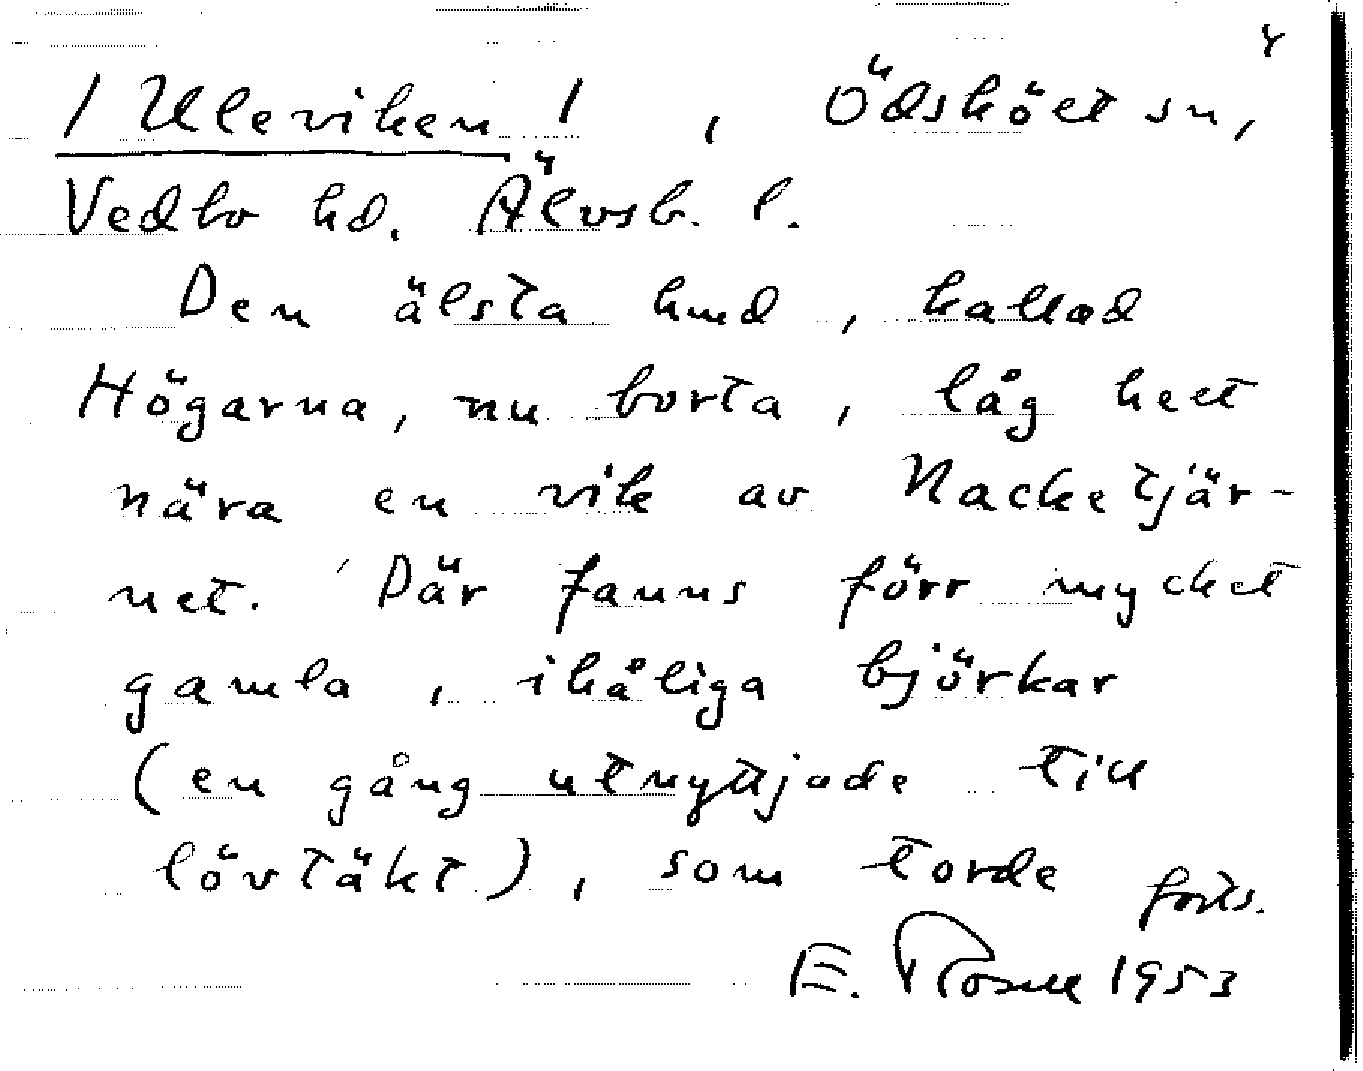 / Uleviken / , Ödskölt sn,
Vedbo hd. Älvsb. l.
Den älsta hmd, kallad
Högarna, nu borta, låg helt
nära en vik av Nacketjär-
net. Där fanns förr mycket
gamla, ihåliga björkar
(en gång utnyttjade till
lövtäkt), som torde forts.
E. Rosell 1953